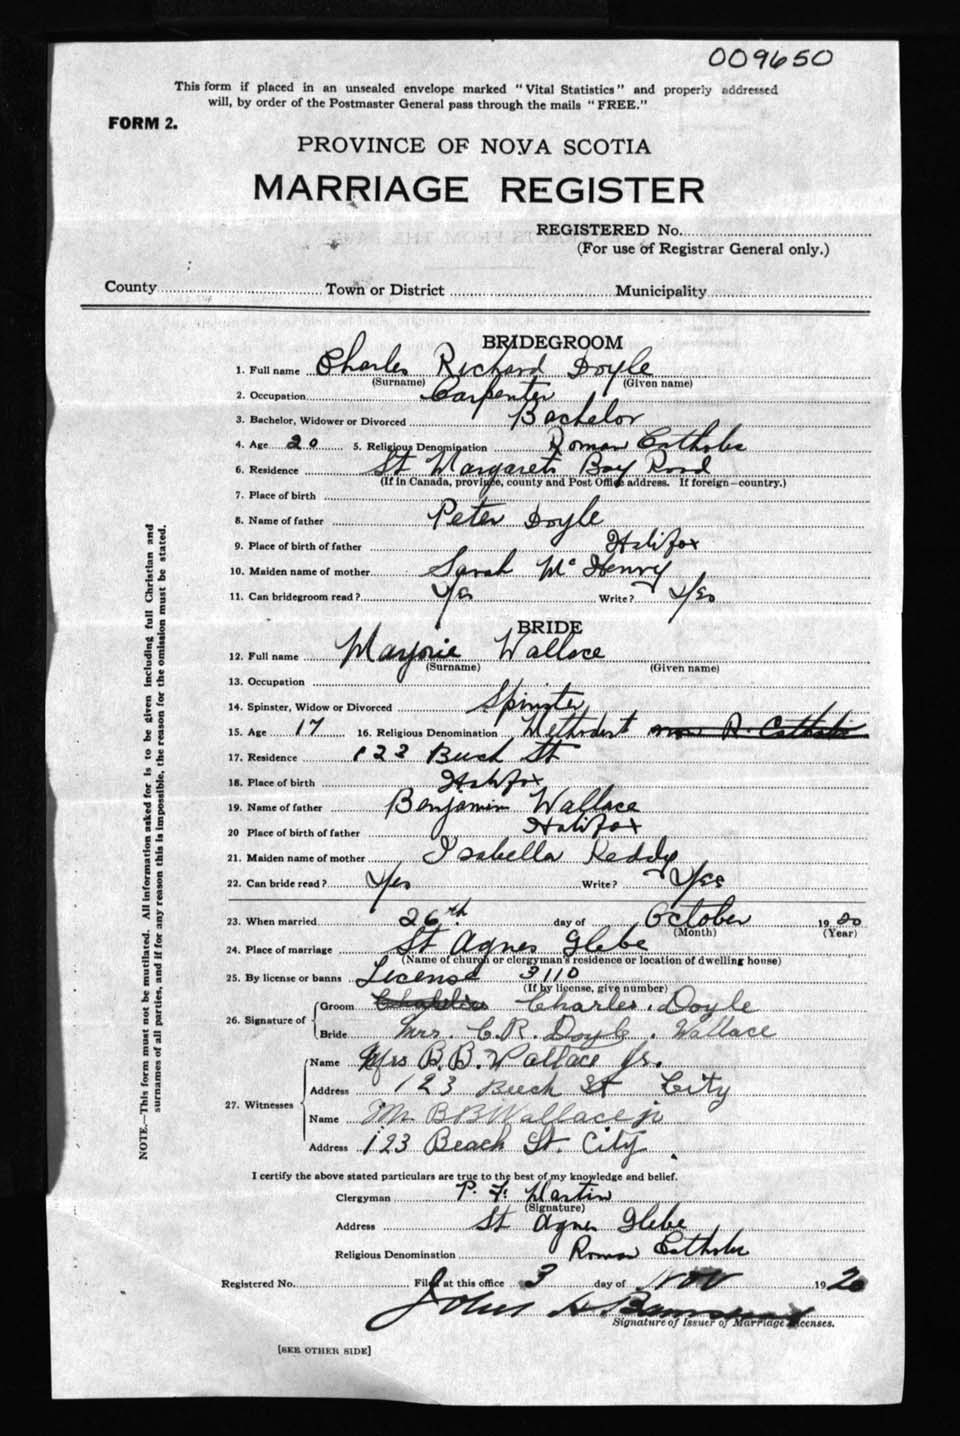 009650
This form if placed in an unsealed envelope marked "Vital Statistics" and properly addressed
will, by order of the Postmaster General pass through the mails "FREE."
FORM 2.
PROVINCE OF NOVA SCOTIA
MARRIAGE REGISTER
REGISTERED No.
(For use of Registrar General only.)
County Town or District Municipality
BRIDEGROOM
1. Full name Charles Richard Doyle
(Surname) (Given name)
2. Occupation Carpenter
3. Bachelor, Widower or Divorced Bachelor
4. Age 20 5. Religious Denomination Roman Catholic
6. Residence St Margarets Bay Road
(If in Canada, province, county and Post Office address. If foreign—country.)
7. Place of birth
8. Name of father Peter Doyle
9. Place of birth of father Halifax
10. Maiden name of mother Sarah Mc Henry
11. Can bridegroom read? Yes Write? Yes
BRIDE
12. Full name Marjorie Wallace
(Surname) (Given name)
13. Occupation
14. Spinster, Widow or Divorced Spinster
15. Age 17 16. Religious Denomination Methodist R. Catholic
17. Residence 123 Buch St
18. Place of birth Halifax
19. Name of father Benjamin Wallace
20 Place of birth of father Halifax
21. Maiden name of mother Isabella Reddy
22. Can bride read? Yes Write? Yes
23. When married 26th day of October 1920
(Month) (Year)
24. Place of marriage St Agnes Glebe
(Name of church or clergyman's residence or location of dwelling house)
25. By license or banns License 3110
(If by license, give number)
26. Signature of Groom Charles. Doyle
Bride Mrs. C.R. Doyle. Wallace
27. Witnesses Name Mrs B. B. Wallace Jr.
Address 123 Beech St City
Name Mr B B Wallace jr
Address 123 Beach St. City.
I certify the above stated particulars are true to the best of my knowledge and belief.
Clergyman P. F. Martin
(Signature)
Address St Agnes Glebe
Religious Denomination Roman Catholic
Registered No. Filed at this office 3 day of Nov 1920
John H.
Signature of Issuer of Marriage Licenses.
[SEE OTHER SIDE]
NOTE.—This form must not be mutilated. All information asked for is to be given including full Christian and
surnames of all parties, and if for any reason this is impossible, the reason for the omission must be stated.